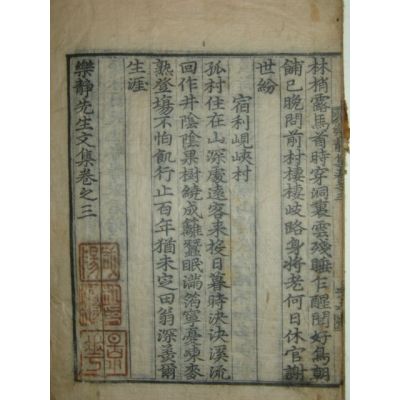 林梢露馬首時穿洞裏雲殘睡乍醒聞好鳥朝
餔已晩問前村棲棲歧路身將老何日休官謝
世紛
宿利峴峽村
孤村住在山深處遠客來投日暮時決決溪流
回作井陰陰果樹繞成籬蠶眠滿箔寧憂凍麥
熟登場不怕飢行止百年猶未定田翁深羨爾
生涯
樂靜先生文集卷之三